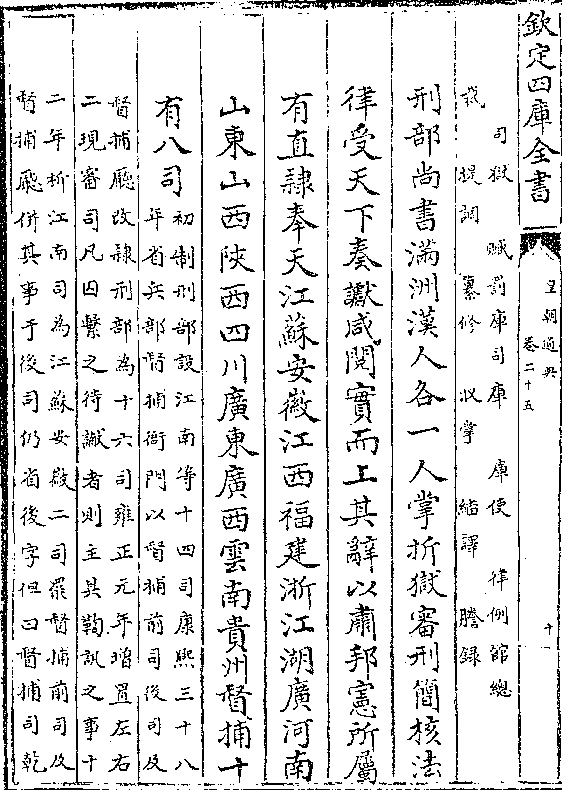 欽定四庫全書
皇朝通典
卷二十五
十一
司獄　贓罰庫司庫　庫使　律例館總
裁　提調　纂修　收掌　繙譯　謄録
刑部尚書滿洲漢人各一人掌折獄審刑簡核法
律受天下奏讞咸閱實而上其辭以肅邦憲所屬
有直隸奉天江蘇安徽江西福建浙江湖廣河南
山東山西陜西四川廣東廣西雲南貴州督捕十
有八司初制刑部設江南等十四司康熙三十八
年省兵部督捕衙門以督捕前司後司及
督捕廳改隸刑部為十六司雍正元年增置左右
二現審司凡囚繫之待讞者則主其鞫訊之事十
二年析江南司為江蘇安徽二司罷督捕前司及
督捕廳併其事于後司仍省後字但曰督捕司乾